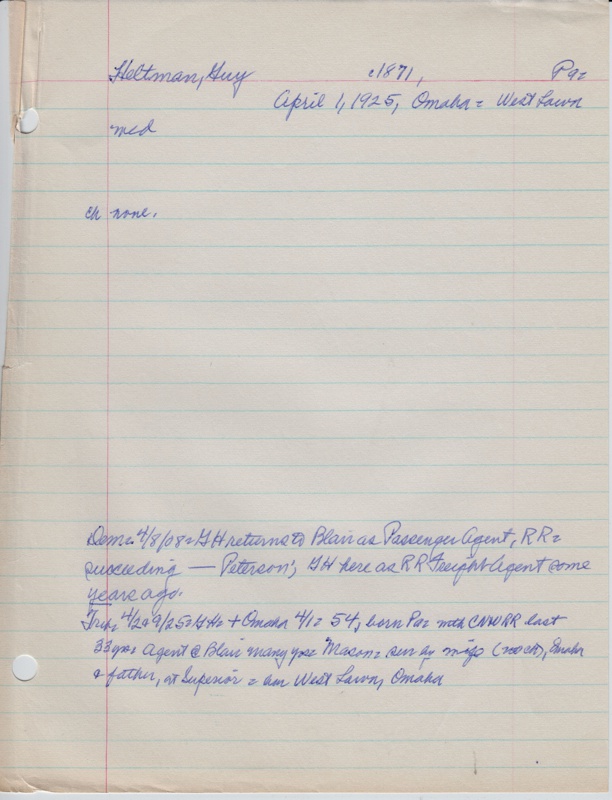 Heltman, Guy c1871, Pa=
April 1, 1925, Omaha = West Lawn
med
ch none.
Dem= 4/8/08= GH returns to Blair as Passenger Agent, RR=
succeeding — Peterson; GH here as RR Freight Agent some
years ago.
Trib= 4/29/25= GH= + Omaha 4/1= 54, born Pa= with CNWRR last
33 yrs Agent @ Blair many yrs= Mason= surv by (no ch), Omaha
& father, at Superior = bur West Lawn, Omaha